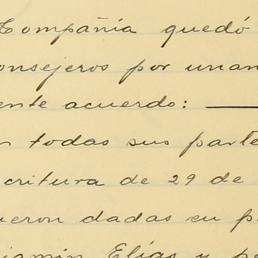 Compañía quedó
onsejeros por unan
ente acuerdo:
n todas sus parte
critura de 29 de
ueron dadas en p
jamin Elías y p